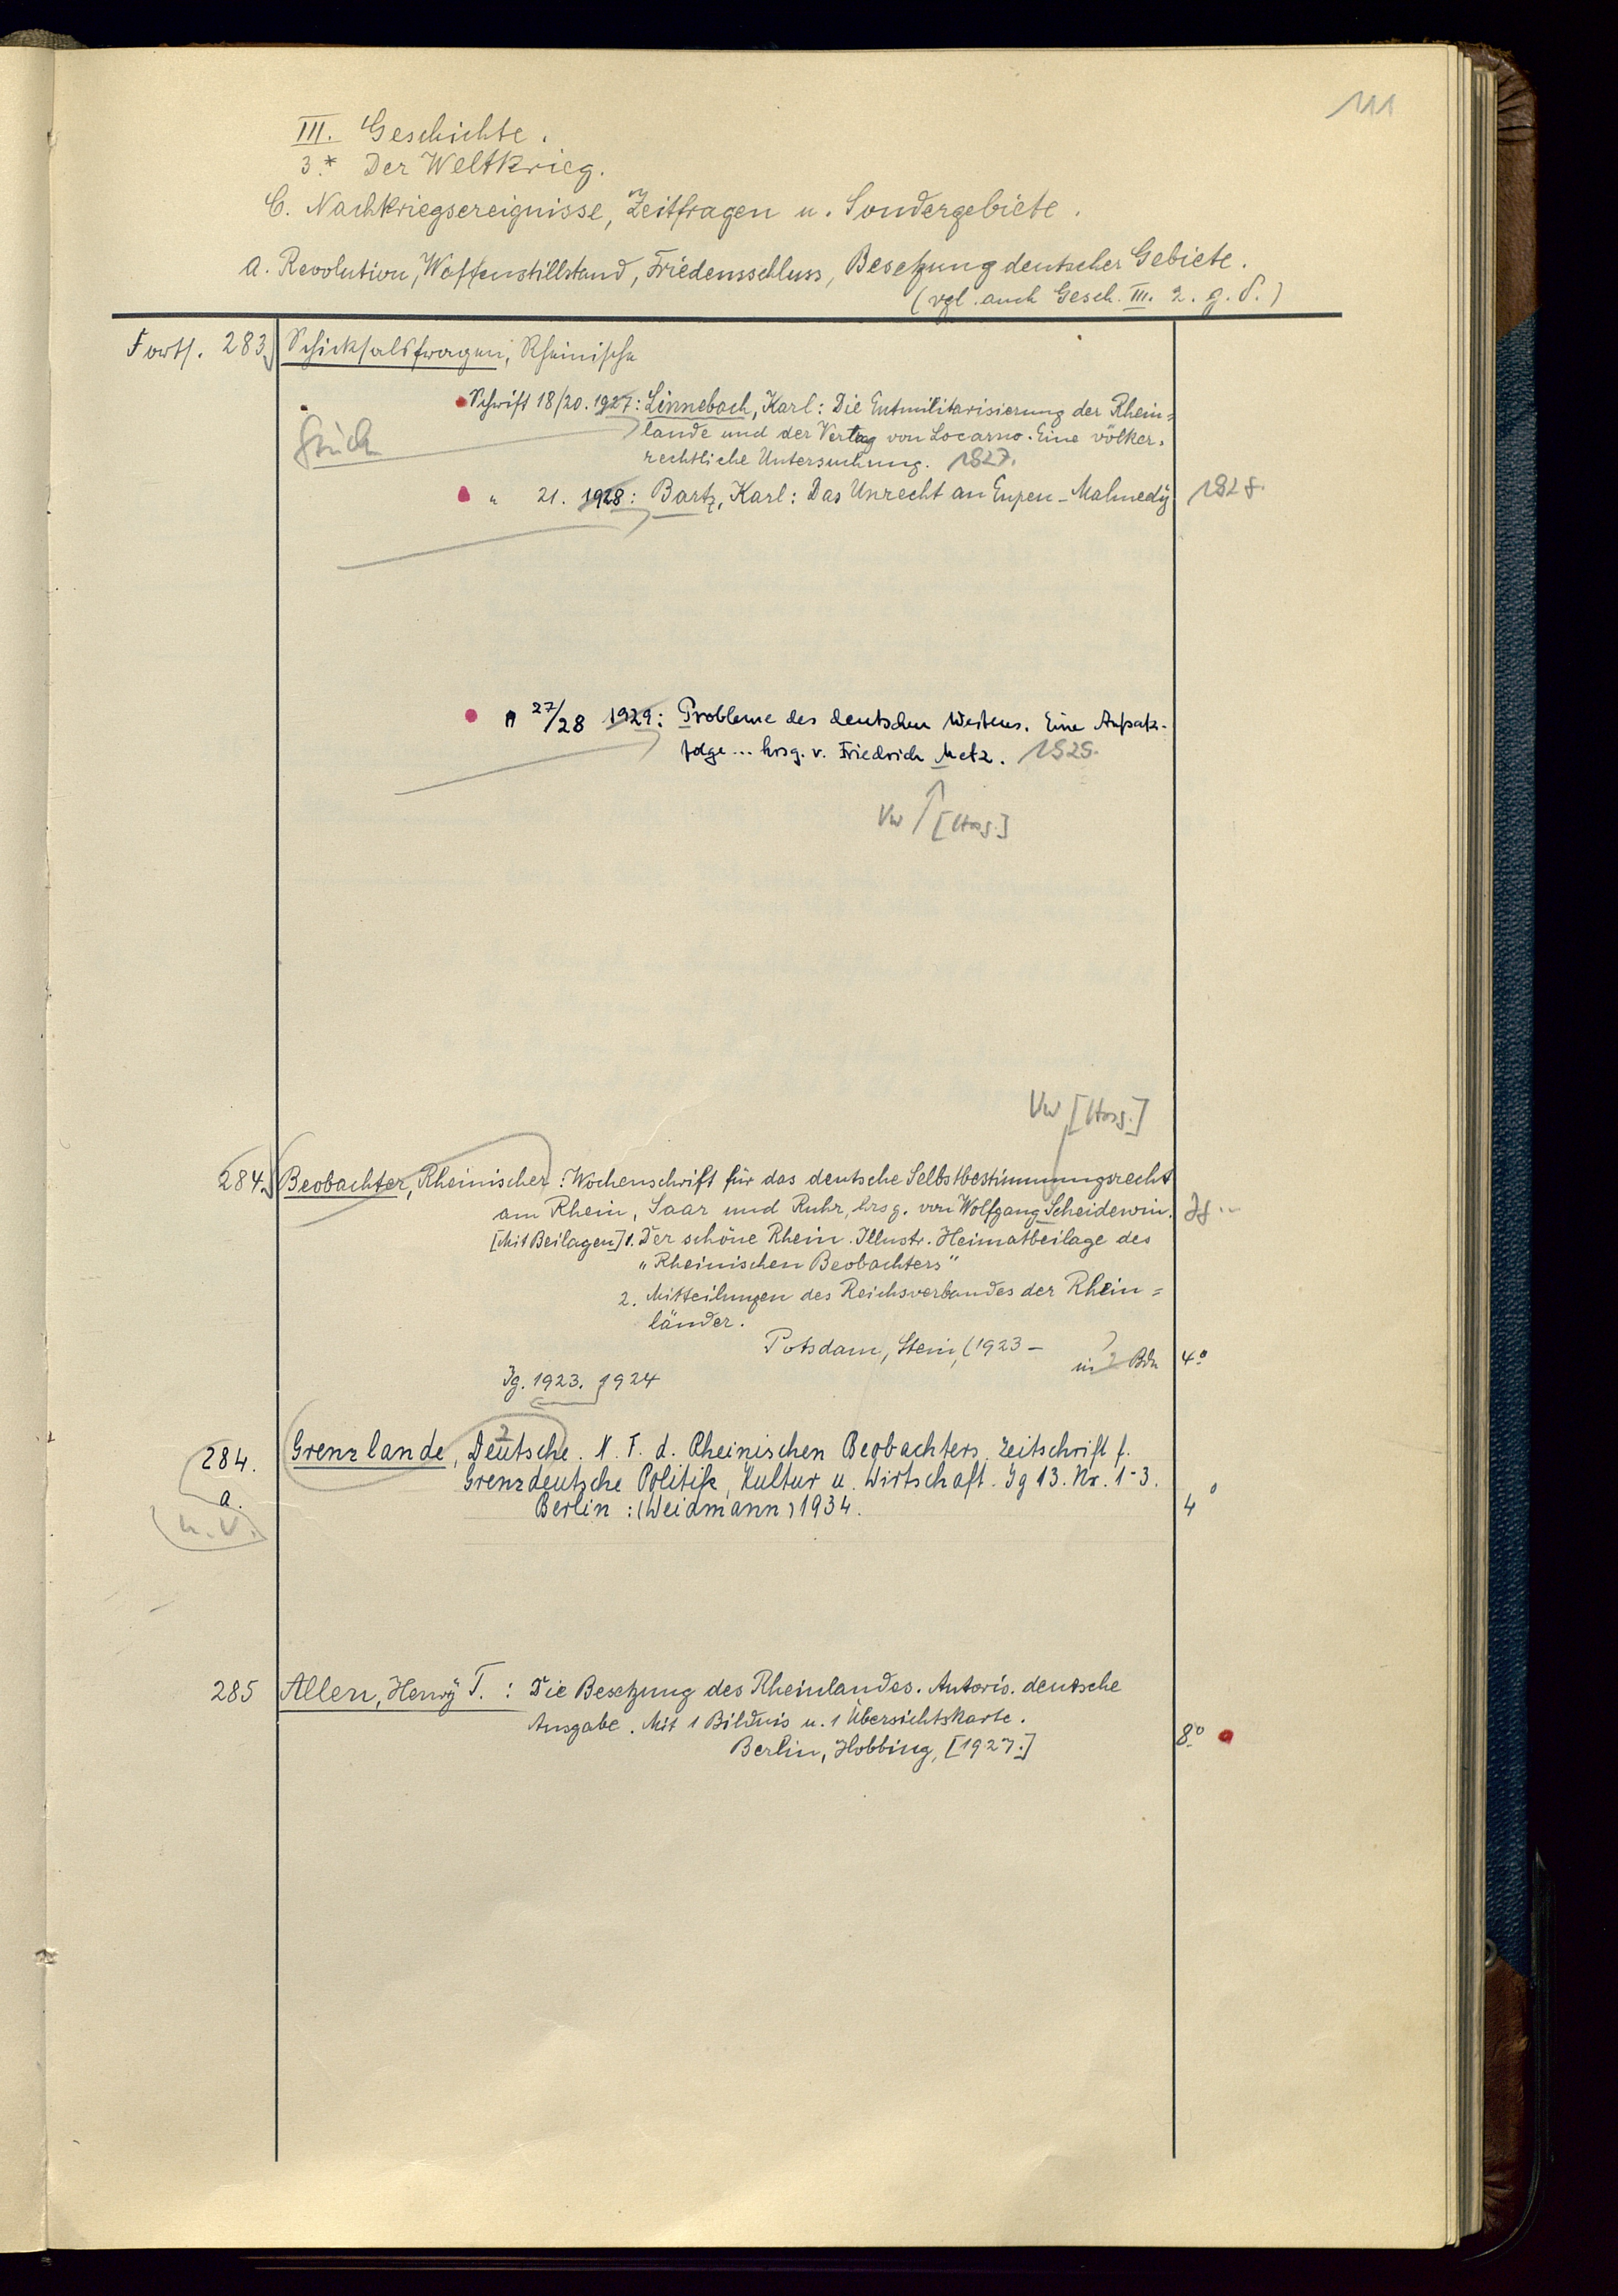 111
III. Geschichte.
3.* Der Weltkrieg.
C. Nachkriegsereignisse, Zeitfragen u. Sondergebiete.
a. Revolution, Waffenstillstand, Friedensschluss, Besetzung deutscher Gebiete.
(vgl. auch Gesch. III. 2. g. δ.)
Forts. 283 Schicksalsfragen, Rheinische
Schrift 18/20. 1927: Linnebach, Karl: Die Entmilitarisierung der Rhein=
lande und der Vertag von Locarno. Eine völker-
rechtliche Untersuchung. 1927.
Stück
" 21. 1928: Bartz, Karl: Das Unrecht an Eupen-Malmedy 1928.
" 27/28 1929: Probleme des deutschen Westens. Eine Aufsatz-
folge... hrsg. v. Friedrich Metz. 1929.
Vw [Hrsg.]
Vw [Hrsg.]
284. Beobachter, Rheinischer: Wochenschrift für das deutsche Selbstbestimmungsrecht
am Rhein, Saar und Ruhr, hrsg. von Wolfgang Scheidewin.
[Mit Beilagen] 1. Der schöne Rhein. Illustr. Heimatbeilage des
"Rheinischen Beobachters"
2. Mitteilungen des Reichsverbandes der Rhein=
länder.
Potsdam, Stein, (1923 – ) in 2 Bdn 4°
Jg. 1923. 1924
284. Grenzlande, Deutsche. N. F. d. Rheinischen Beobachters. Zeitschrift f.
a. Grenzdeutsche Politik, Kultur u. Wirtschaft. Jg 13. Nr. 1-3.
Berlin: (Weidmann) 1934. 4°
n. v.
285 Allen, Henry T.: Die Besetzung des Rheinlandes. Autoris. deutsche
Ausgabe. Mit 1 Bildnis u. 1 Übersichtskarte.
Berlin, Hobbing, [1927.] 8°